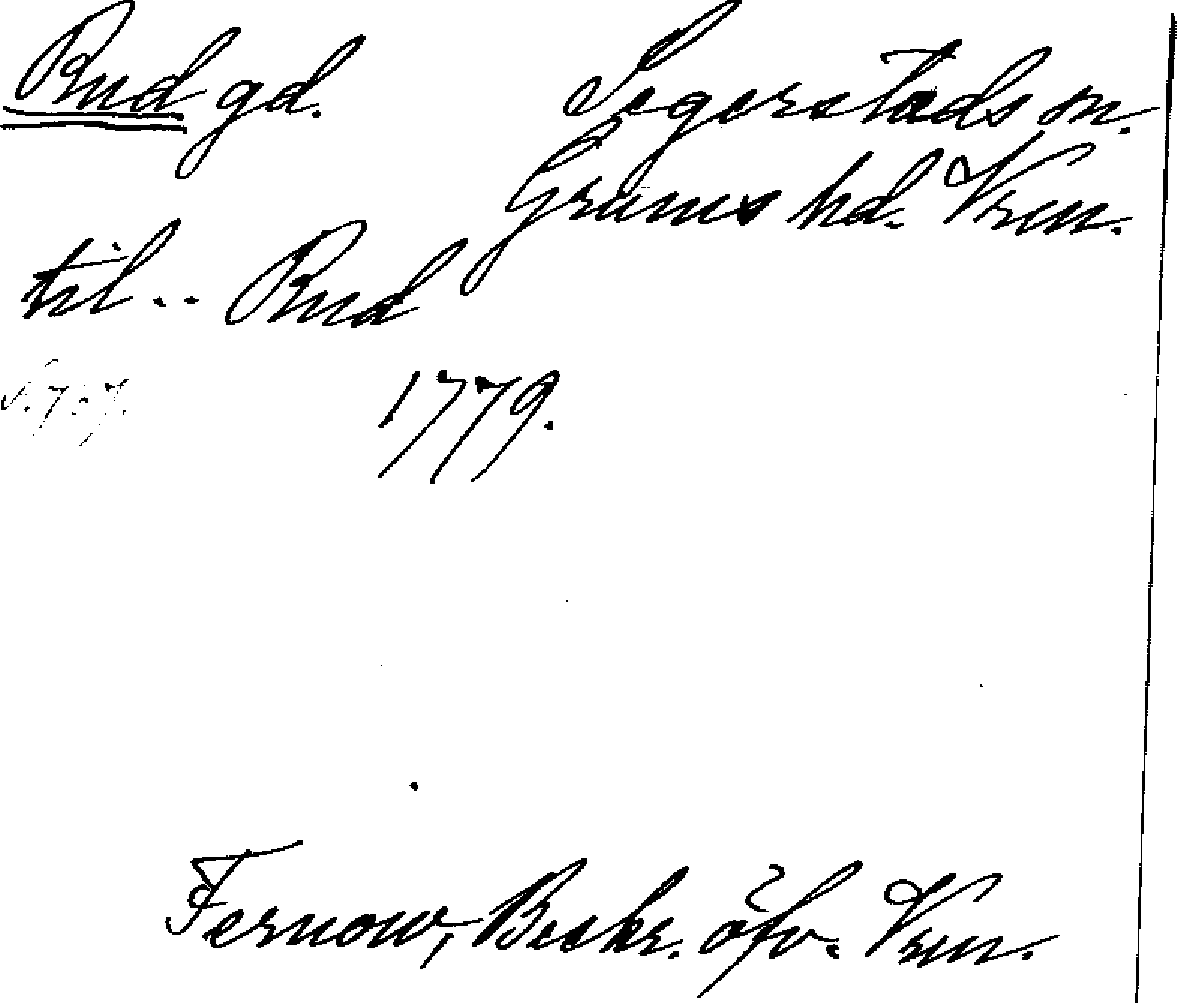 Rud gd. Segerstads sn.
Grums hd. Vrm.
til.. Rud
S. 707.
1779.
Fernow, Beskr. öfv. Vrm.